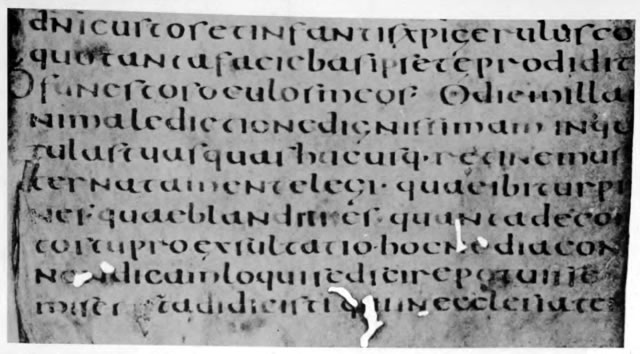 dnicustosetinfantisxpigerulusco
quotantafaciebasipseteprodidit
Ofunestosoculosineos Odiemilla
nimaledictionedignissimam inqu
tulastuasquashucusq·retinemus
ternatamentelegi·quaeibiturpi
nes·quaeblanditiaes·quantadeco
tostuproexsultatio·hocnediacon
nondicamloquisedscirepotuisse
miser didicisti quiinecclesiate